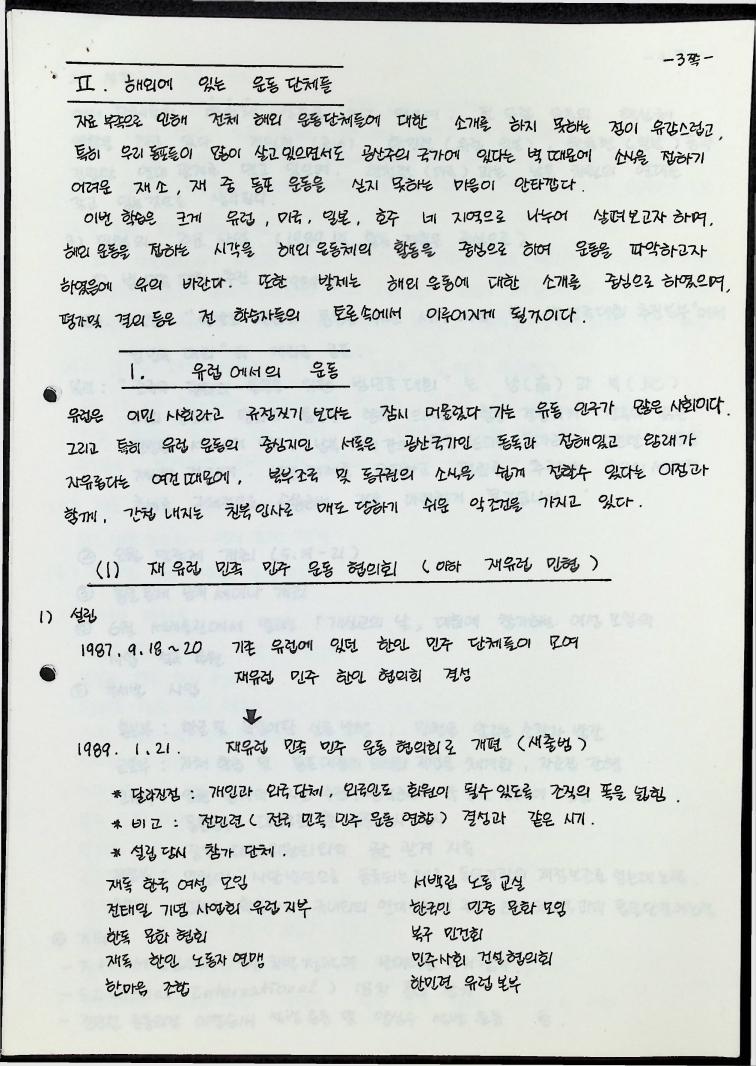 -3쪽-
II. 해외에 있는 운동단체들
자료 부족으로 인해 전체 해외 운동단체들에 대한 소개를 하지 못하는 점이 유감스럽고,
특히 우리 동포들이 많이 살고있으면서도 공산주의 국가에 있다는 벽 때문에 소식을 접하기
어려운 재소, 재중 동포 운동을 싣지 못하는 마음이 안타깝다.
이번 학습은 크게 유럽, 미국, 일본, 호주 네 지역으로 나누어 살펴보고자 하며,
해외 운동을 접하는 시각을 해외 운동체의 활동을 중심으로 하여 운동을 파악하고자
하였음에 유의 바란다. 또한 발제는 해외 운동에 대한 소개를 중심으로 하였으며,
평가및 결의 등은 전 학습자들의 토론속에서 이루어지게 될것이다.
1. 유럽에서의 운동
유럽은 이민 사회라고 규정짓기 보다는 잠시 머물렀다 가는 유동 인구가 많은 사회이다.
그리고 특히 유럽 운동의 중심지인 서독은 공산국가인 동독과 접해있고 왕래가
자유롭다는 여건때문에, 북부조국 및 동구권의 소식을 쉽게 접할수 있다는 이점과
함께, 간첩 내지는 친북인사로 매도 당하기 쉬운 악조건을 가지고 있다.
(1) 재유럽 민족 민주 운동 협의회 (이하 재유럽 민협)
1) 설립
1987. 9. 18~20 기존 유럽에 있던 한인 민주 단체들이 모여
재유럽 민주 한인 협의회 결성
1989. 1. 21. 재유럽 민족 민주 운동 협의회로 개편 (새출범)
* 달라진점 : 개인과 외국단체, 외국인도 회원이 될수 있도록 조직의 폭을 넓힘.
* 비고 : 전민련 (전국 민족 민주 운동 연합) 결성과 같은 시기.
* 설립 당시 참가 단체.
재독 한국 여성 모임 서백림 노동 교실
전태일 기념 사업회 유럽지부 한국인 민중 문화 모임
한독 문화 협회 북구 민건회
재독 한인 노동자 연맹 민주사회 건설협의회
한마음 조합 한민련 유럽본부